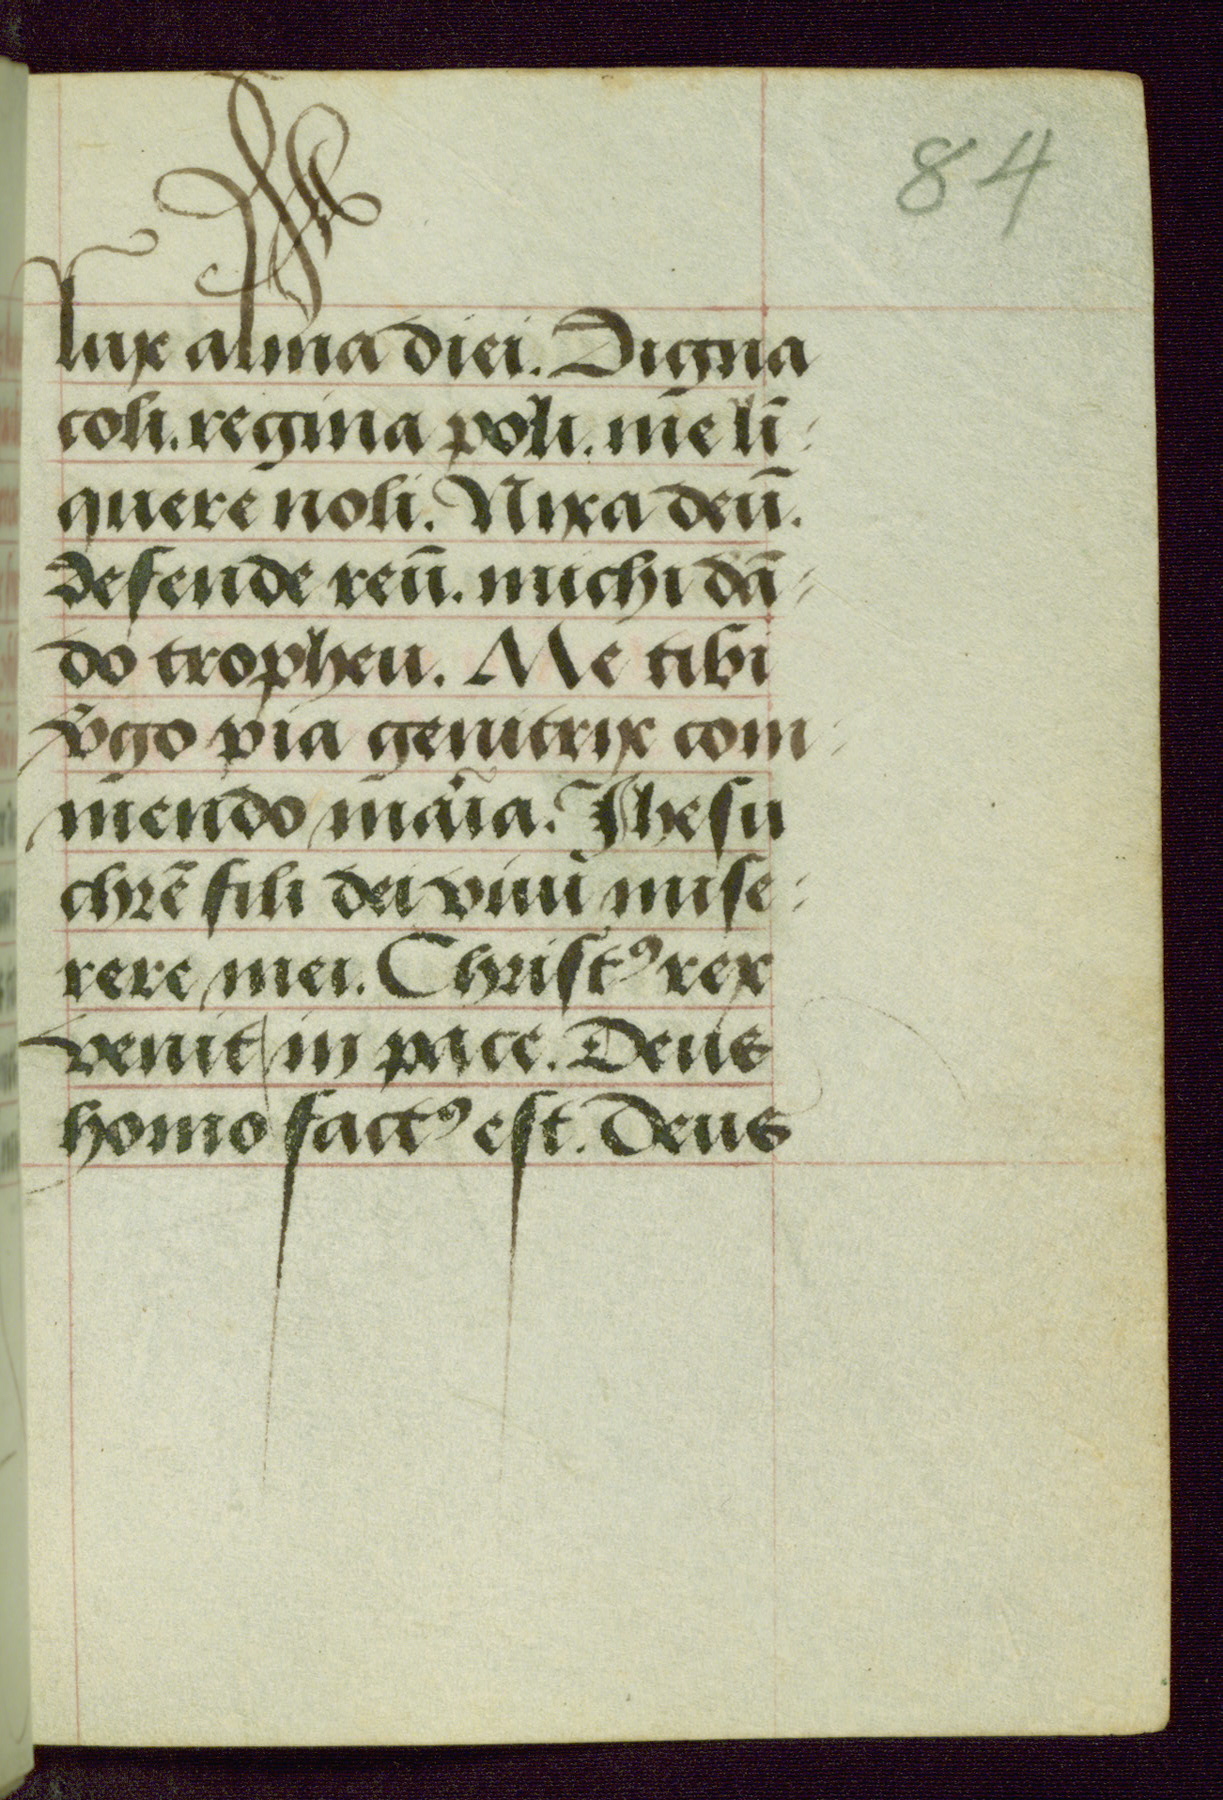 84
lux alma diei. Digna
coli. regina poli. me li͞
quere noli. Nixa deū.
defende reū. michi dā
do tropheu. Me tibi
v̄go pia genitrix com
mendo maria. Jhesu
chr̄e fili dei viui mise
rere mei. Christꝰ rex
venit in pace. Deus
homo factꝰ est. Deus